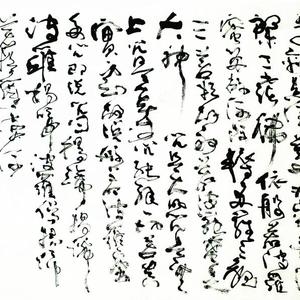 三世諸佛依般若波羅
蜜多故得阿耨多羅三藐
三菩提故知般若波羅蜜多
大神咒是大明咒是無
上咒是無等等咒能除一切苦真
實不虛故說般若波羅蜜
多咒即說咒曰揭諦揭諦
波羅揭諦波羅僧揭諦